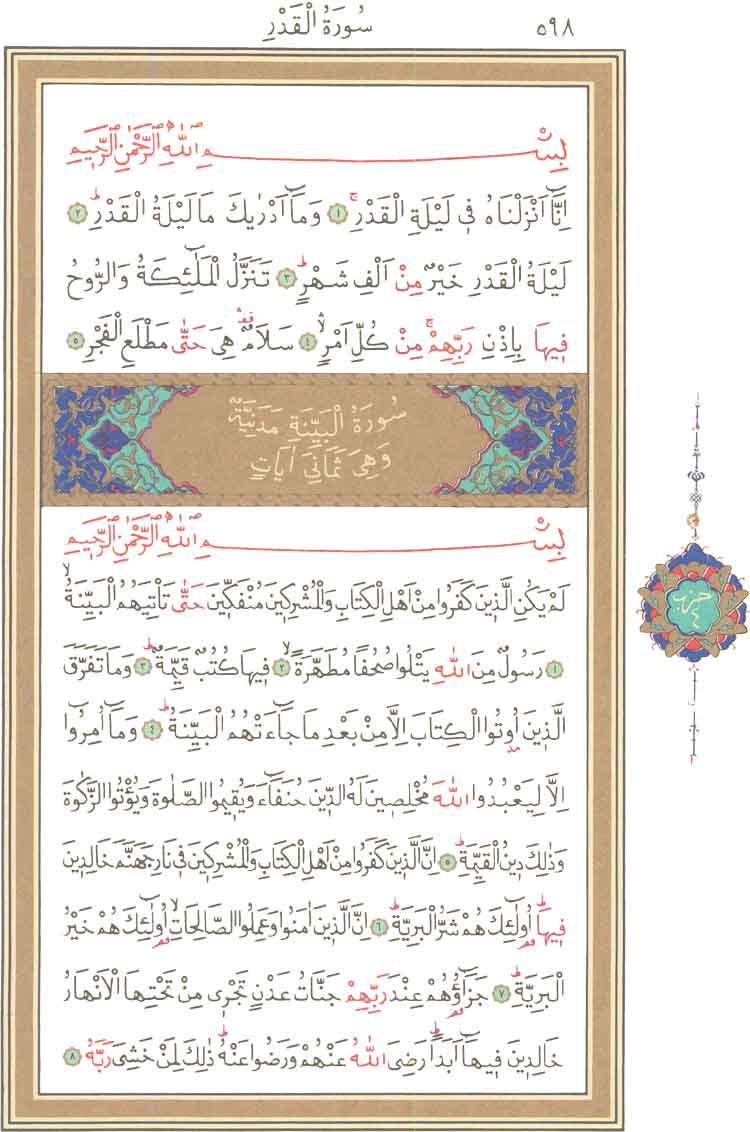 سُورَةُ الْقَدْرِ ٥٩٨
بِسْمِ اللّٰهِ الرَّحْمٰنِ الرَّحِيمِ
اِنَّٓا اَنْزَلْنَاهُ فٖى لَيْلَةِ الْقَدْرِۚ ١ وَمَٓا اَدْرٰيكَ مَا لَيْلَةُ الْقَدْرِۜ ٢
لَيْلَةُ الْقَدْرِ خَيْرٌ مِنْ اَلْفِ شَهْرٍۜ ٣ تَنَزَّلُ الْمَلٰٓئِكَةُ وَالرُّوحُ
فٖيهَا بِاِذْنِ رَبِّهِمْۚ مِنْ كُلِّ اَمْرٍۙ ٤ سَلَامٌ۠ هِىَ حَتّٰى مَطْلَعِ الْفَجْرِ ٥
سُورَةُ الْبَيِّنَةِ مَدَنِيَّةٌ
وَهِىَ ثَمَانِىَ اٰيَاتٍ
بِسْمِ اللّٰهِ الرَّحْمٰنِ الرَّحِيمِ
لَمْ يَكُنِ الَّذٖينَ كَفَرُوا مِنْ اَهْلِ الْكِتَابِ وَالْمُشْرِكٖينَ مُنْفَكّٖينَ حَتّٰى تَاْتِيَهُمُ الْبَيِّنَةُۙ
١ رَسُولٌ مِنَ اللّٰهِ يَتْلُوا صُحُفًا مُطَهَّرَةًۙ ٢ فٖيهَا كُتُبٌ قَيِّمَةٌۜ ٣ وَمَا تَفَرَّقَ
الَّذٖينَ اُوتُوا الْكِتَابَ اِلَّا مِنْ بَعْدِ مَا جَٓاءَتْهُمُ الْبَيِّنَةُۜ ٤ وَمَٓا اُمِرُٓوا
اِلَّا لِيَعْبُدُوا اللّٰهَ مُخْلِصٖينَ لَهُ الدّٖينَ حُنَفَٓاءَ وَيُقٖيمُوا الصَّلٰوةَ وَيُؤْتُوا الزَّكٰوةَ
وَذٰلِكَ دٖينُ الْقَيِّمَةِۜ ٥ اِنَّ الَّذٖينَ كَفَرُوا مِنْ اَهْلِ الْكِتَابِ وَالْمُشْرِكٖينَ فٖى نَارِ جَهَنَّمَ خَالِدٖينَ
فٖيهَاۜ اُولٰٓئِكَ هُمْ شَرُّ الْبَرِيَّةِۜ ٦ اِنَّ الَّذٖينَ اٰمَنُوا وَعَمِلُوا الصَّالِحَاتِۙ اُولٰٓئِكَ هُمْ خَيْرُ
الْبَرِيَّةِۜ ٧ جَزَٓاؤُهُمْ عِنْدَ رَبِّهِمْ جَنَّاتُ عَدْنٍ تَجْرٖى مِنْ تَحْتِهَا الْاَنْهَارُ
خَالِدٖينَ فٖيهَٓا اَبَدًاۜ رَضِىَ اللّٰهُ عَنْهُمْ وَرَضُوا عَنْهُۜ ذٰلِكَ لِمَنْ خَشِىَ رَبَّهُ ٨
حزب
٤